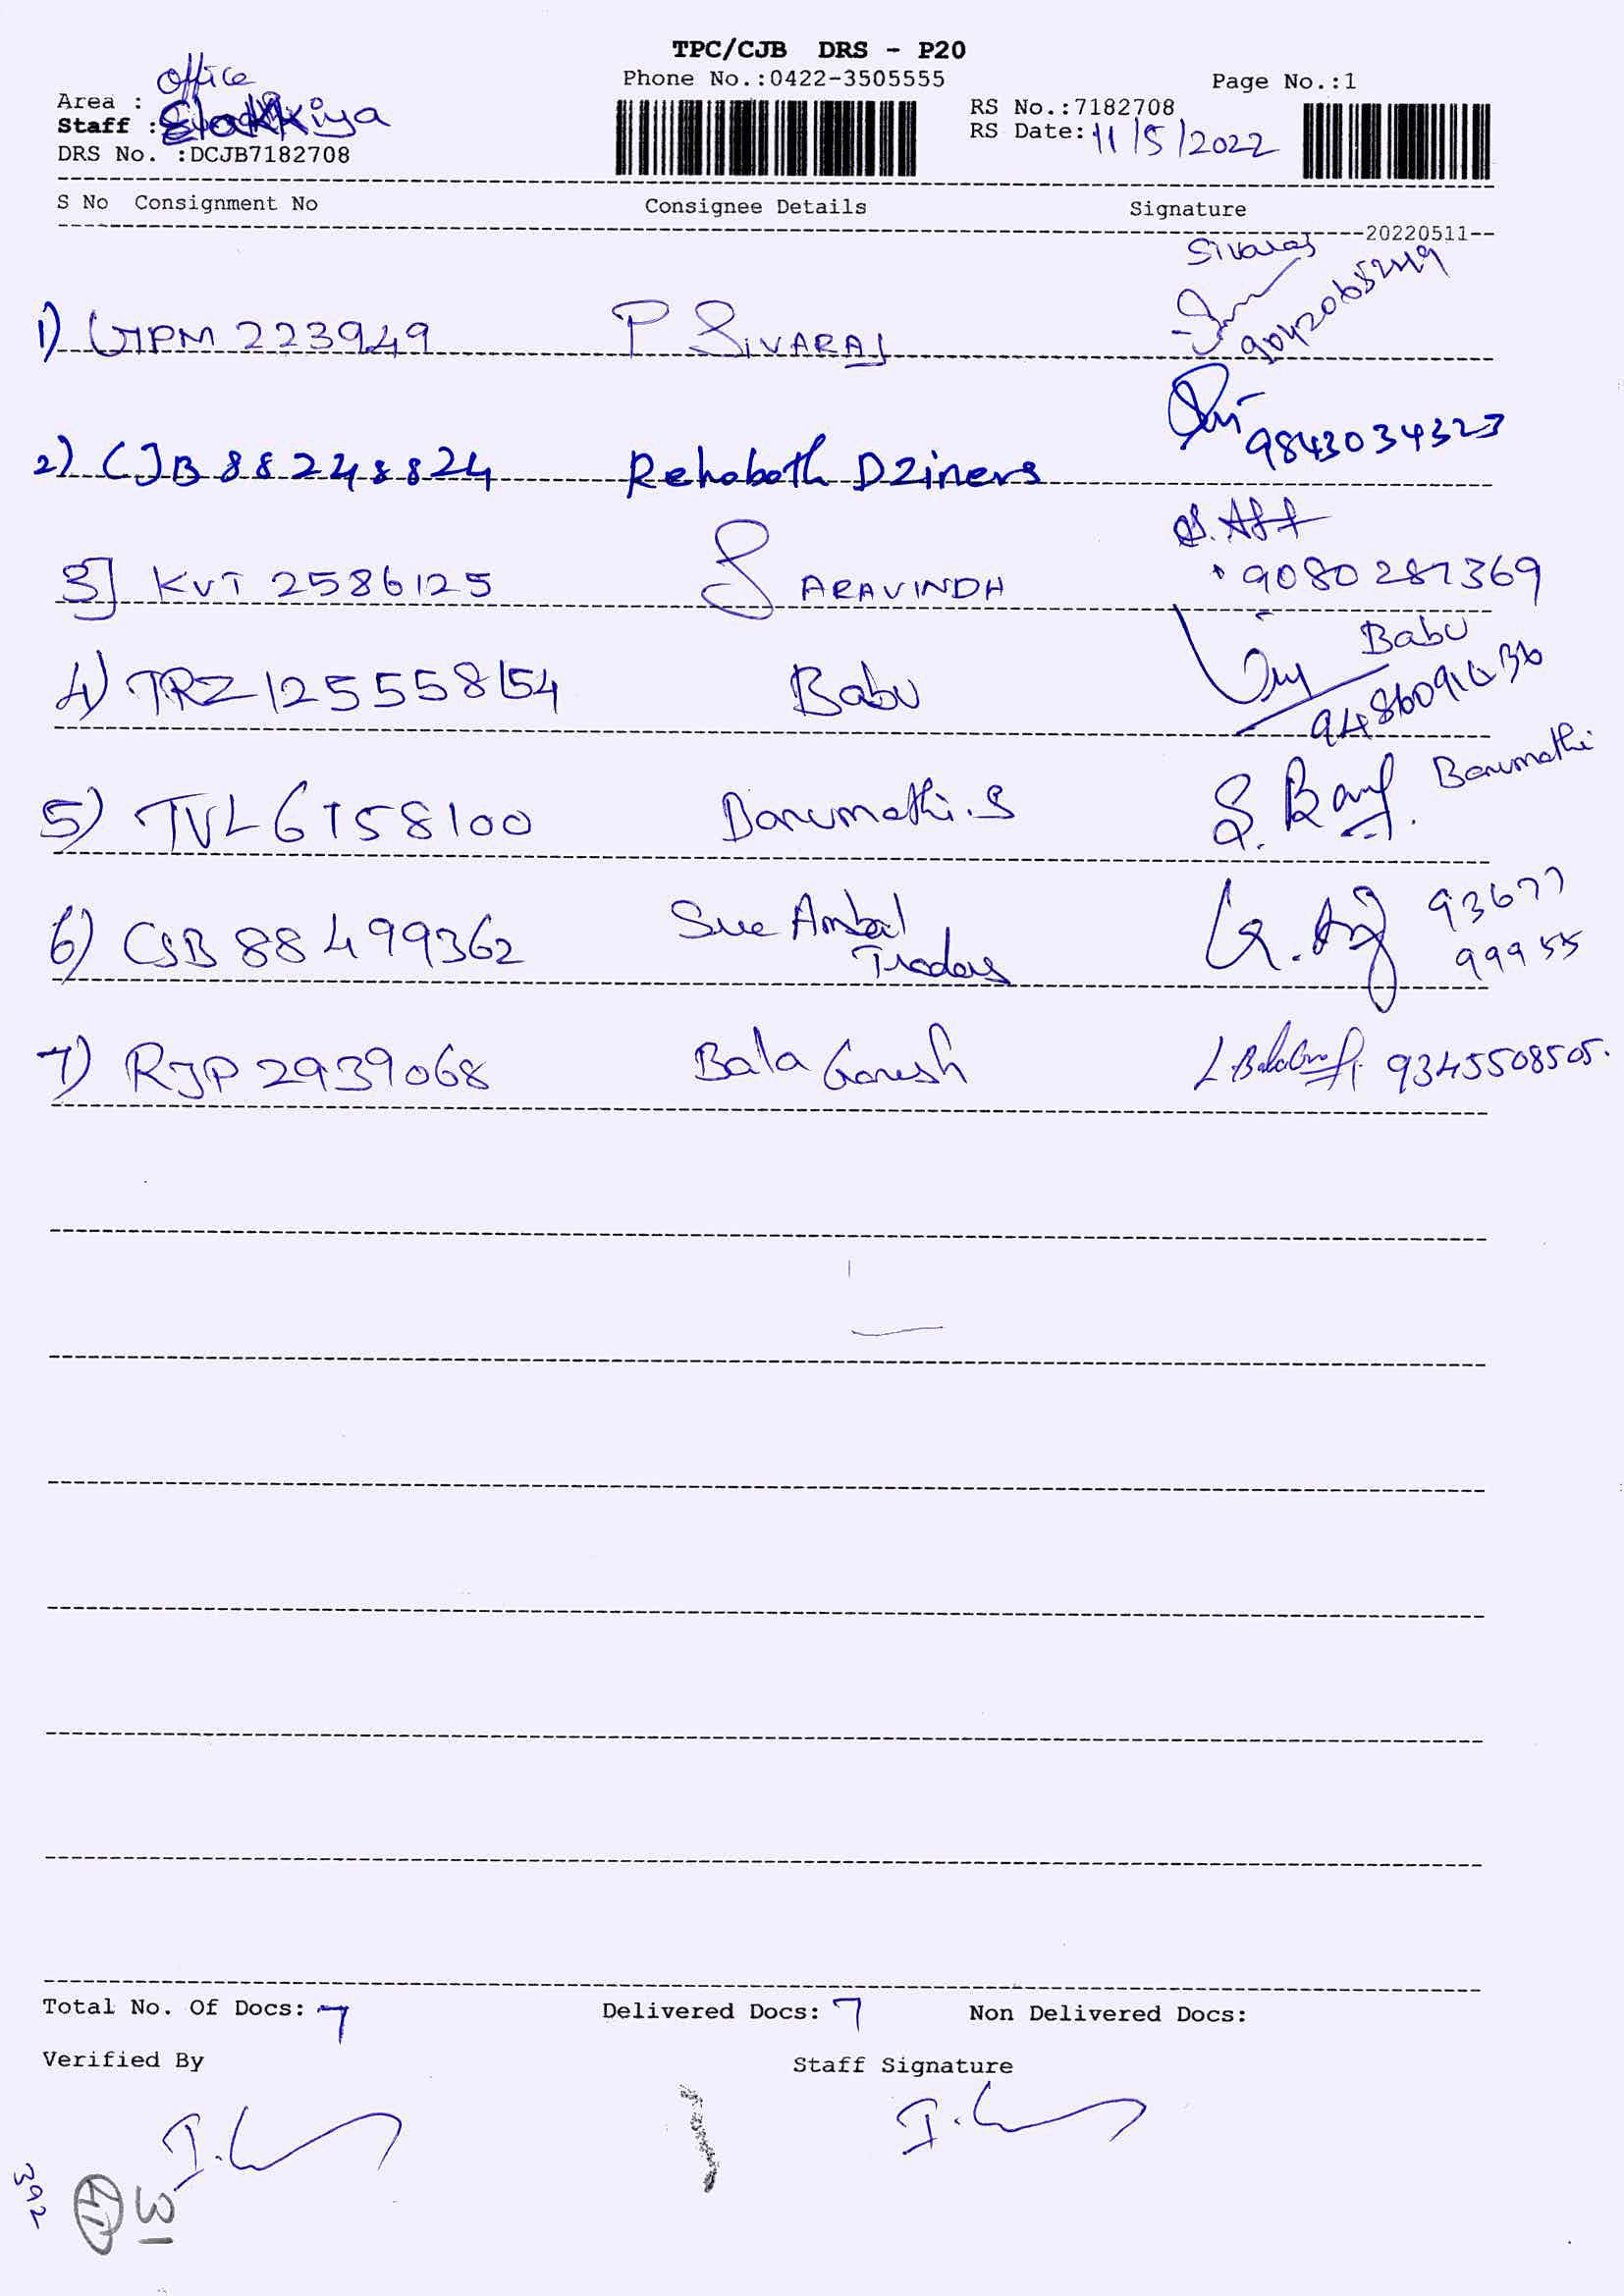 TPC/CJB DRS - P20
Phone No.:0422-3505555
Page No.:1
office
Area :
Staff : Elakkiya
DRS No. :DCJB7182708
RS No.:7182708
RS Date: 11/5/2022
S No Consignment No Consignee Details Signature
20220511
Sivaraj
1) GTPM 223949 P SIVARAJ
2) CJB 88248824 Rehoboth DZiners 9843034323
3] KVT 2586125 S ARAVINDH 9080287369
4) TRZ 125558154 Babu Babu
5) TVL6758100 Banumathi.S Banumathi
6) CJB 88499362 Sree Ambal Traders 93677 99955
7) RJP 2939068 Bala Ganesh 9345508505.
Total No. Of Docs: 7 Delivered Docs: 7 Non Delivered Docs:
Verified By Staff Signature
392